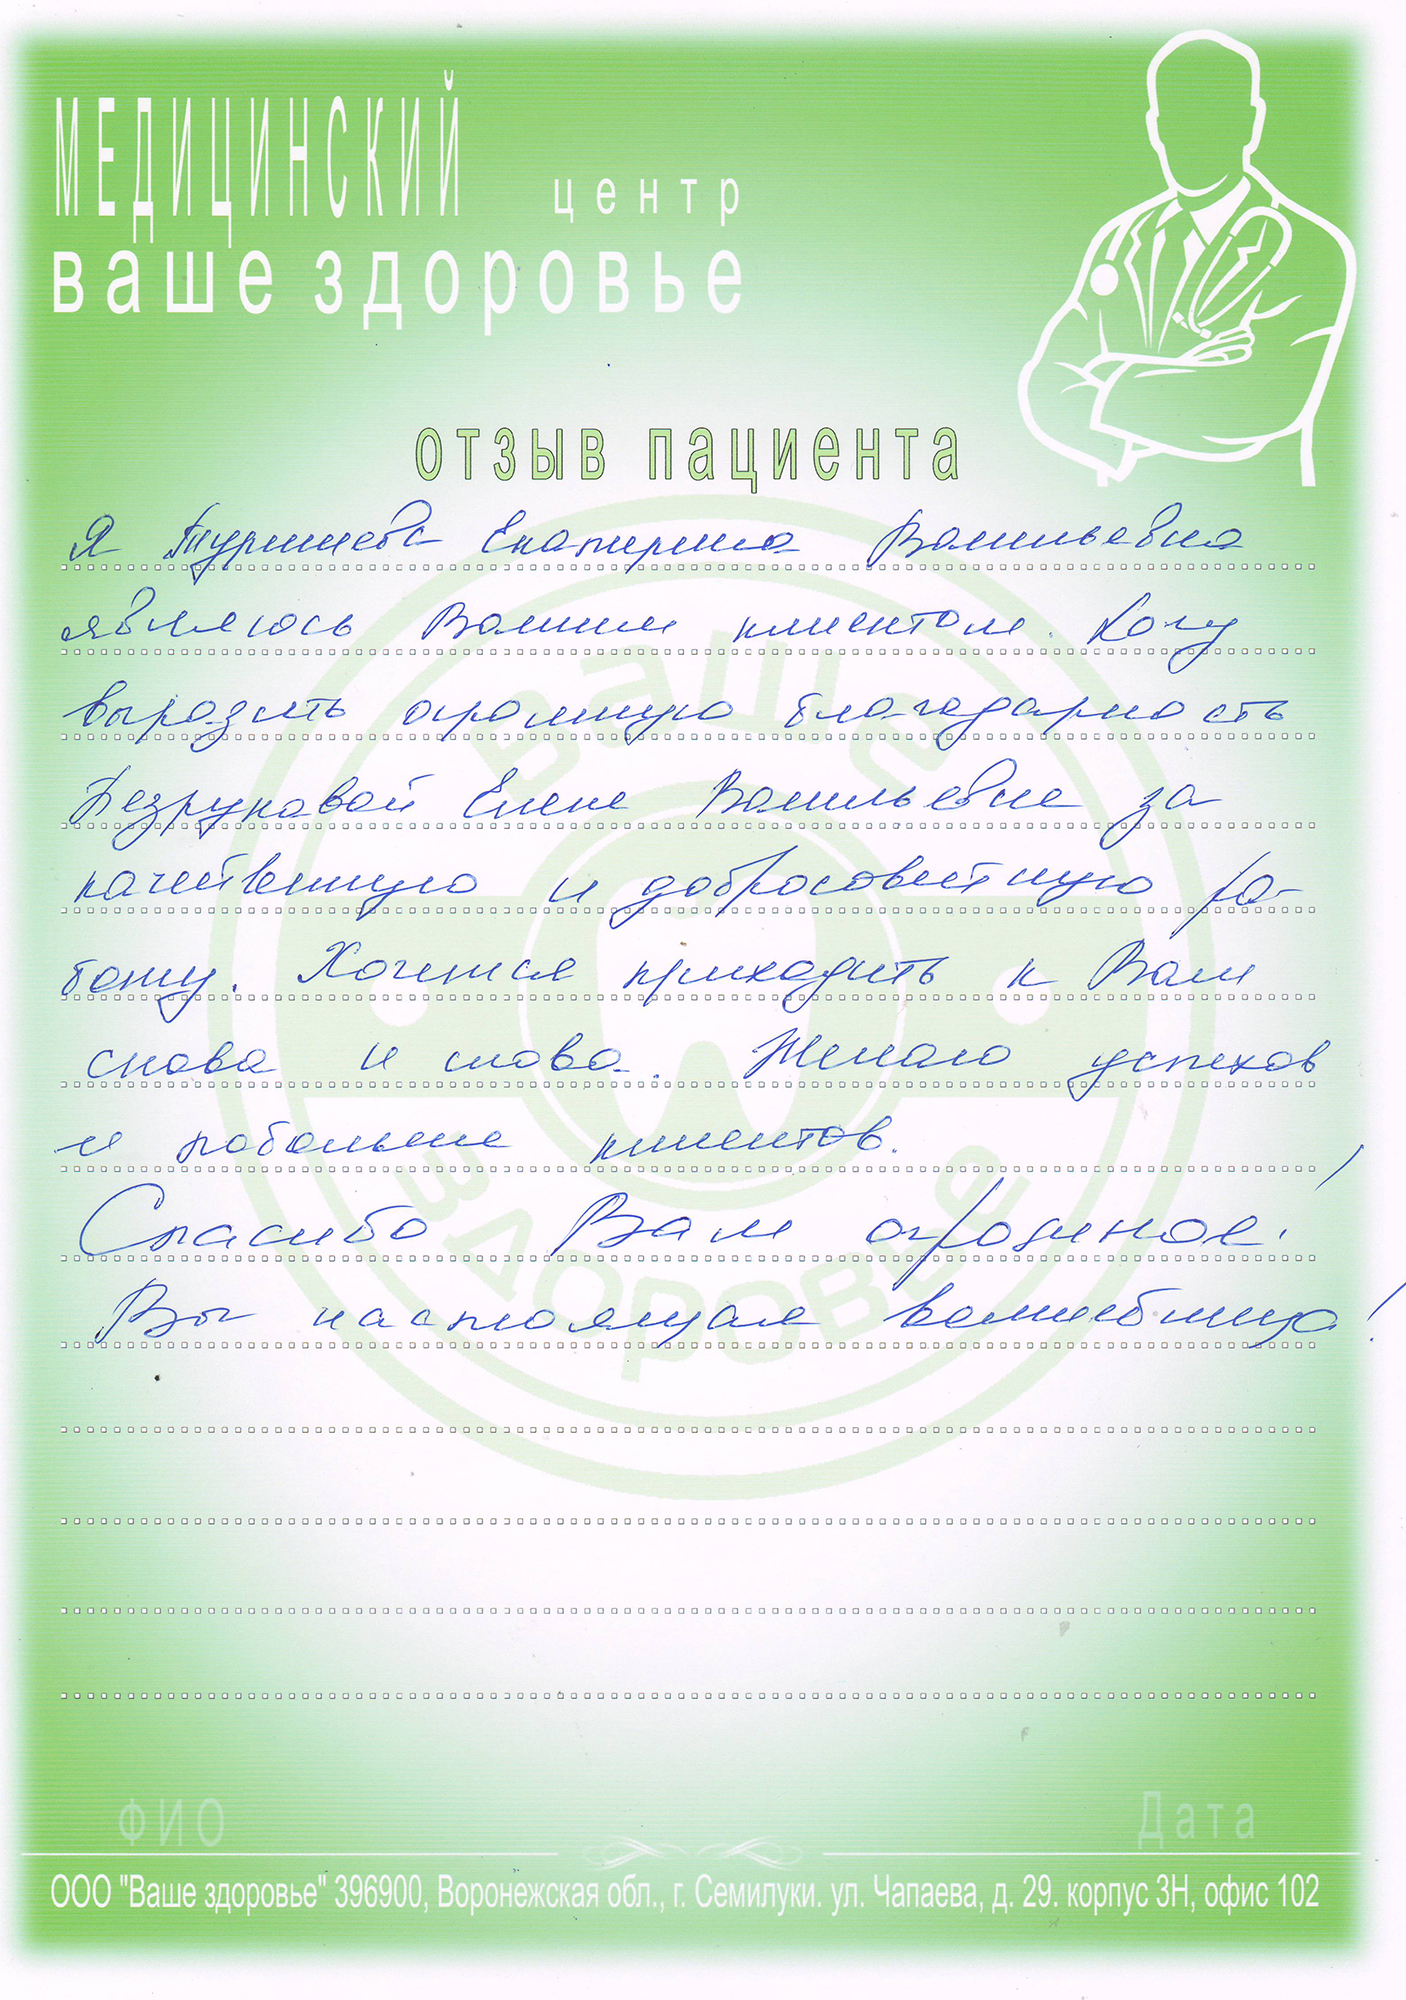 МЕДИЦИНСКИЙ центр
ваше здоровье
отзыв пациента
Я Екатерина Васильевна
являюсь Вашим клиентом. Хочу
выразить огромную благодарность
Безруковой Елене Васильевне за
качественную и добросовестную ра-
боту. Хочется приходить к Вам
снова и снова. Желаю успехов
и побольше клиентов.
Спасибо Вам огромное!
Вы настоящая волшебница!
Ваше
здоровье
ФИО Дата
ООО "Ваше здоровье" 396900, Воронежская обл., г. Семилуки. ул. Чапаева, д. 29. корпус 3Н, офис 102